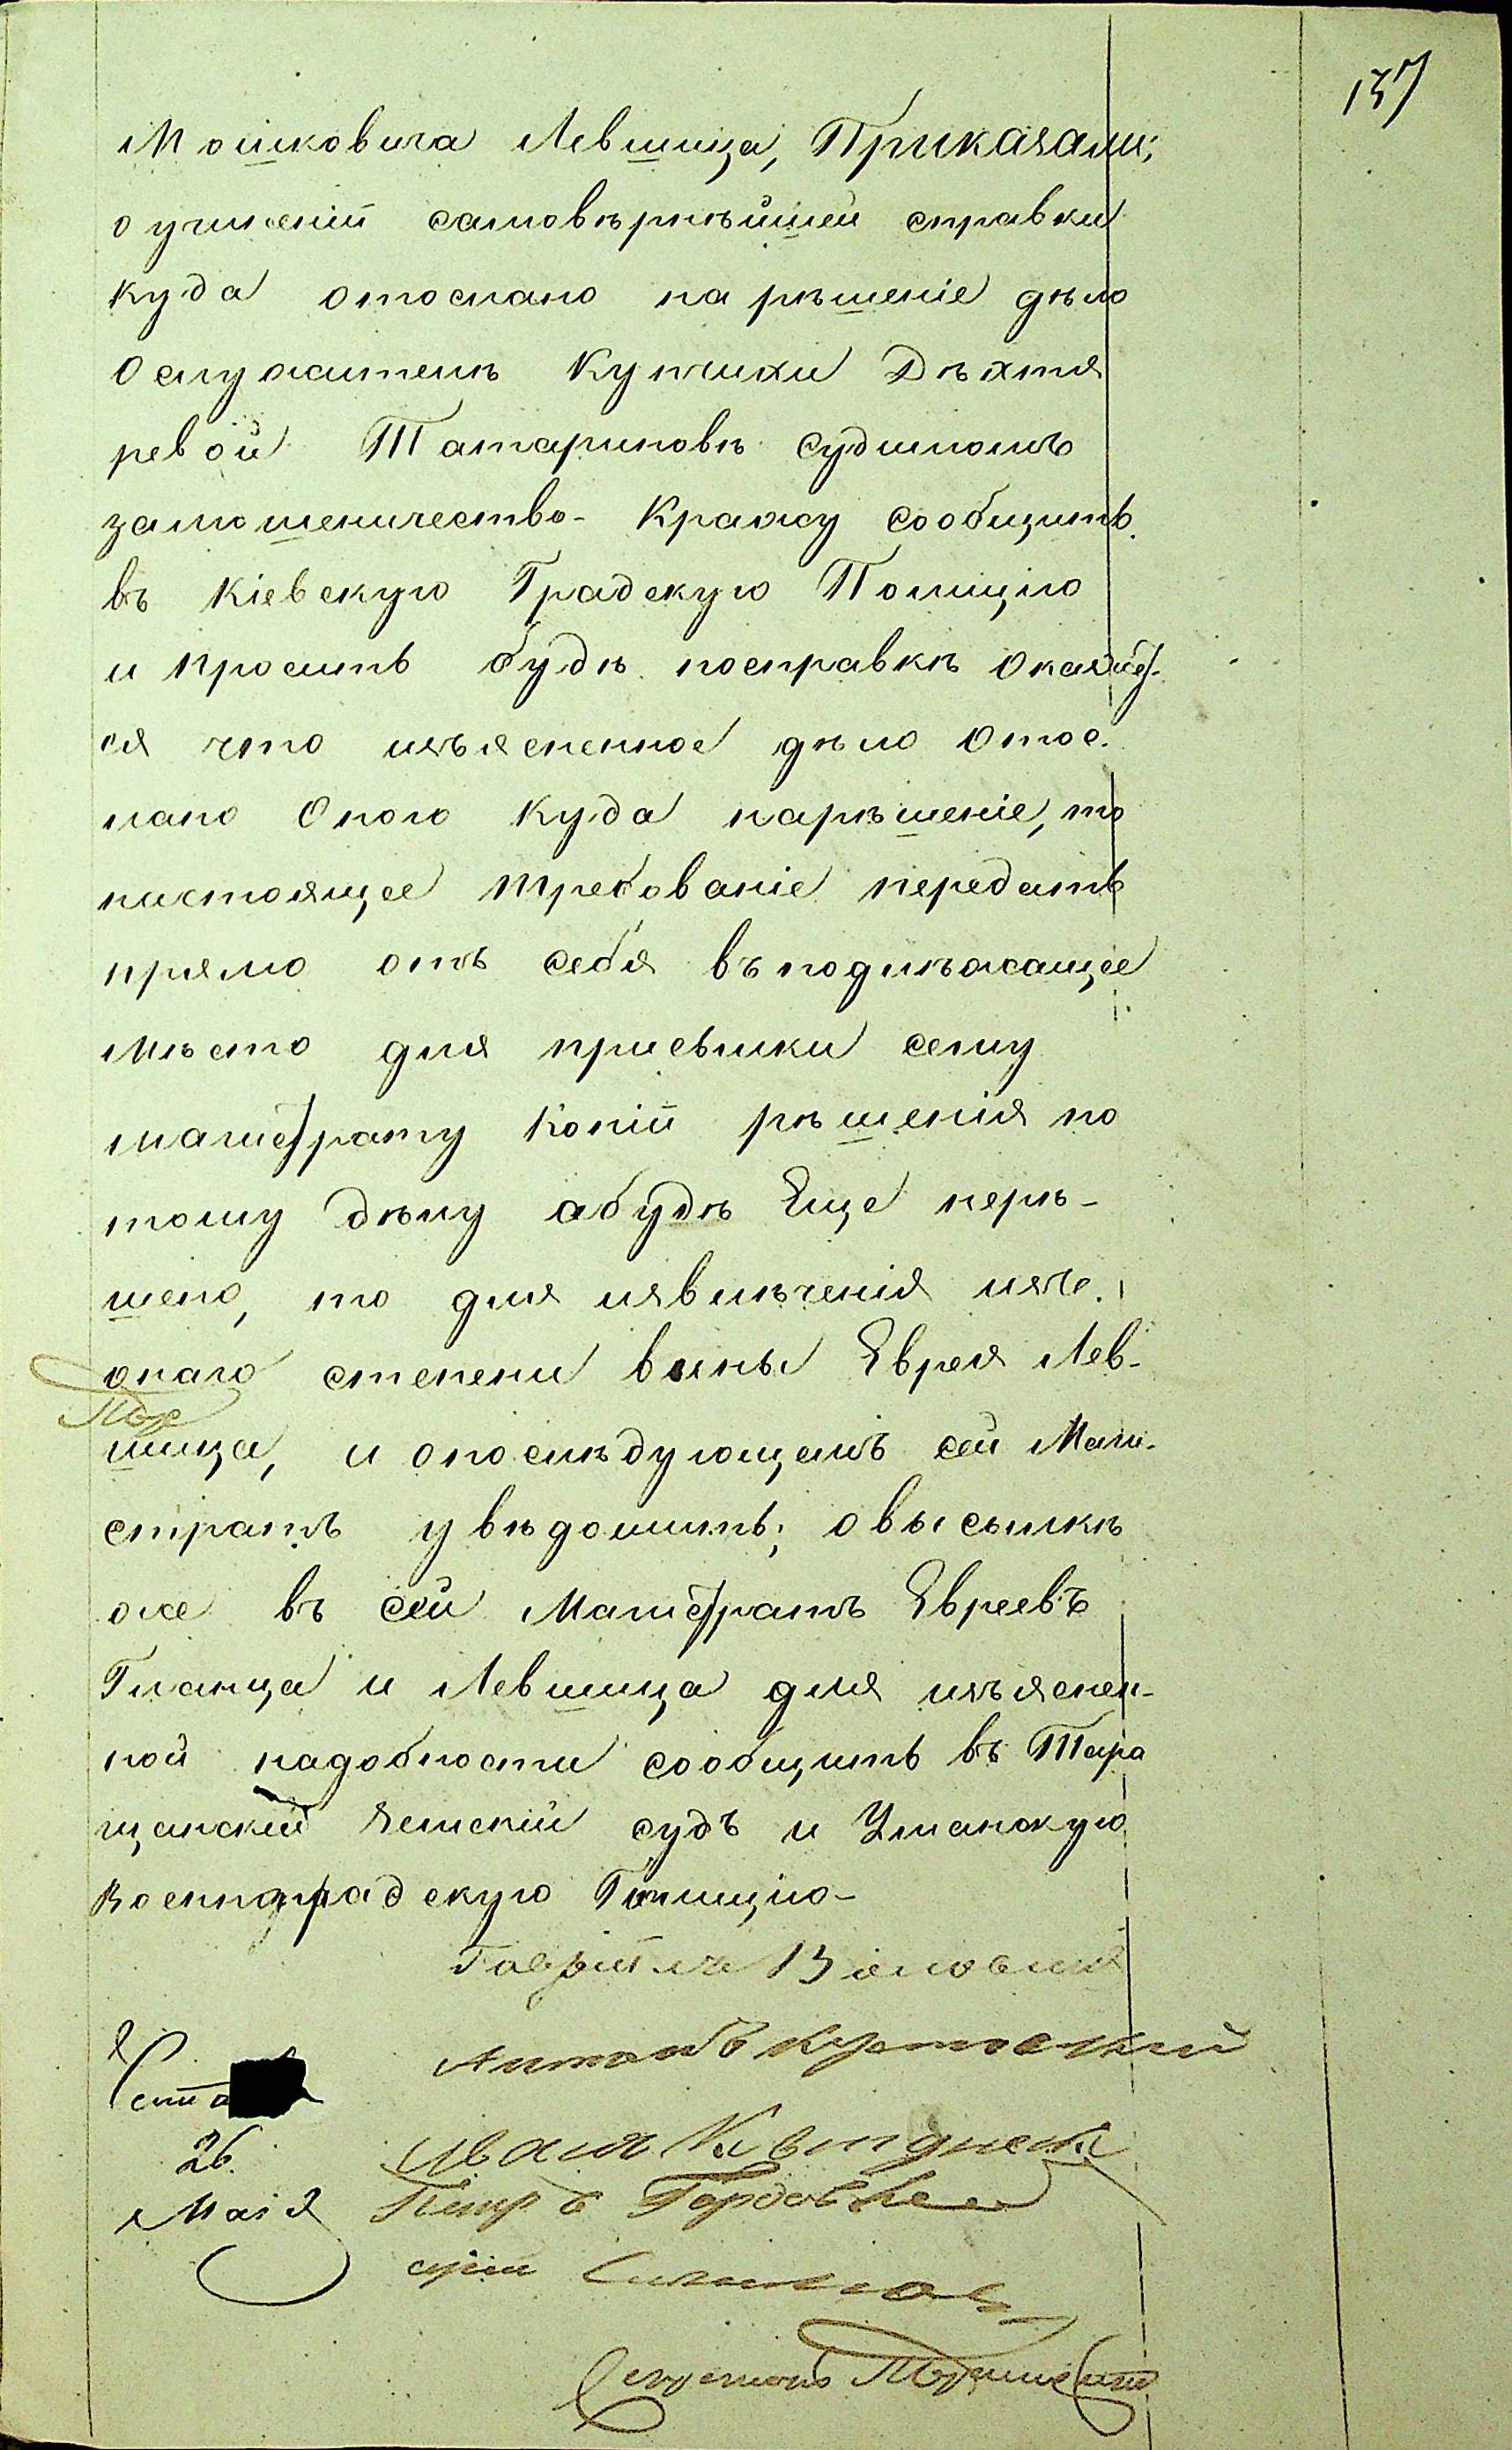 137
Мошковича Левшица, Приказали;
о учиненіи самовѣрнѣйшей справки
куда отослано на рѣшеніе дѣло
о служителѣ купчихи Дѣхтя
ревой Татариновѣ судимомъ
замошеничество-кражу сообщить
въ Кіевскую Градскую Полицію
и просить будѣ посправкѣ окажет-
ся что изъясненное дѣло отос.
лано оного куда нарѣшеніе, то
настоящее требованіе передать
прямо отъ себя въ подлѣжащее
мѣсто для присылки сему
магистрату копіи рѣшенія по
тому дѣлу абудѣ Еще нерѣ-
шено, то для извлѣченія изъ
онаго степени вины Еврея Лев-
шица, и опослѣдующемъ сей Маги-
стратъ увѣдомить; о высылкѣ
же въ сей Магистратъ Евреевъ
Гланца и Левшица для изъяснен-
ной надобности сообщить въ Тара
щанскій Земскій судъ и Уманскую
Военноградскую Полицію-
Антонъ
26.
Мая
Иванъ
Петръ
Секретарь